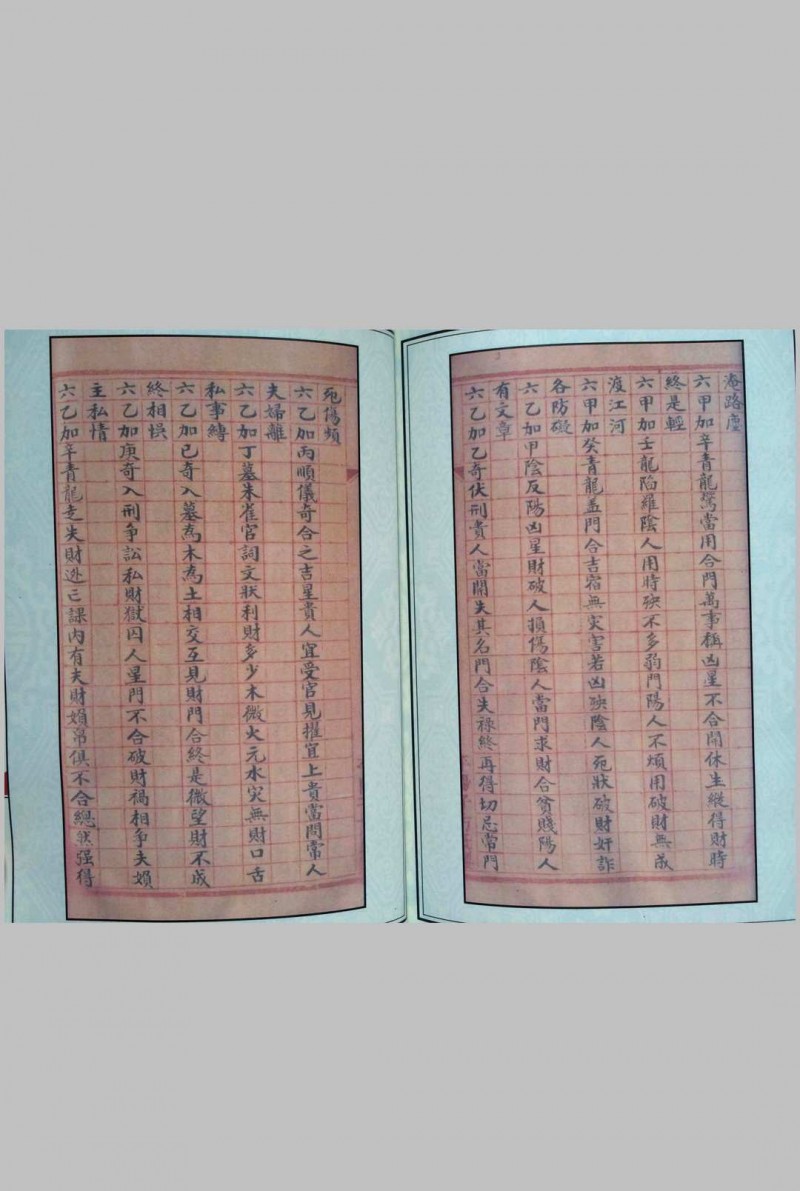 海路塵
六甲加辛青龍驚當用合門萬事稱凶星不合開休生縱得財時
終是輕
六甲加壬龍陷羅陰人用時殃不多弱門陽人不煩用破財無成
渡江河
六甲加癸青龍盖門合吉宿無灾害若凶殃陰人死狀破財奸詐
各防礙
六乙加甲陰反陽凶星財破人損傷陰人當門求財合貧賤陽人
有文章
六乙加乙奇伏刑貴人當開失其名門合失祿終再得切忌常門
死傷頻
六乙加丙順儀奇合之吉星貴人宜受官見擢宜上貴當問常人
夫婦離
六乙加丁墓朱雀官詞文狀利財多少木微火元水灾無財口舌
私事縛
六乙加己奇入墓為木為土相交互見財門合終是微望財不成
終相悞
六乙加庚奇入刑争訟私財獄囚人星門不合破財禍相争夫損
主私情
六乙加辛青龍走失財迯亡課內有夫財娟帛俱不合總然强得